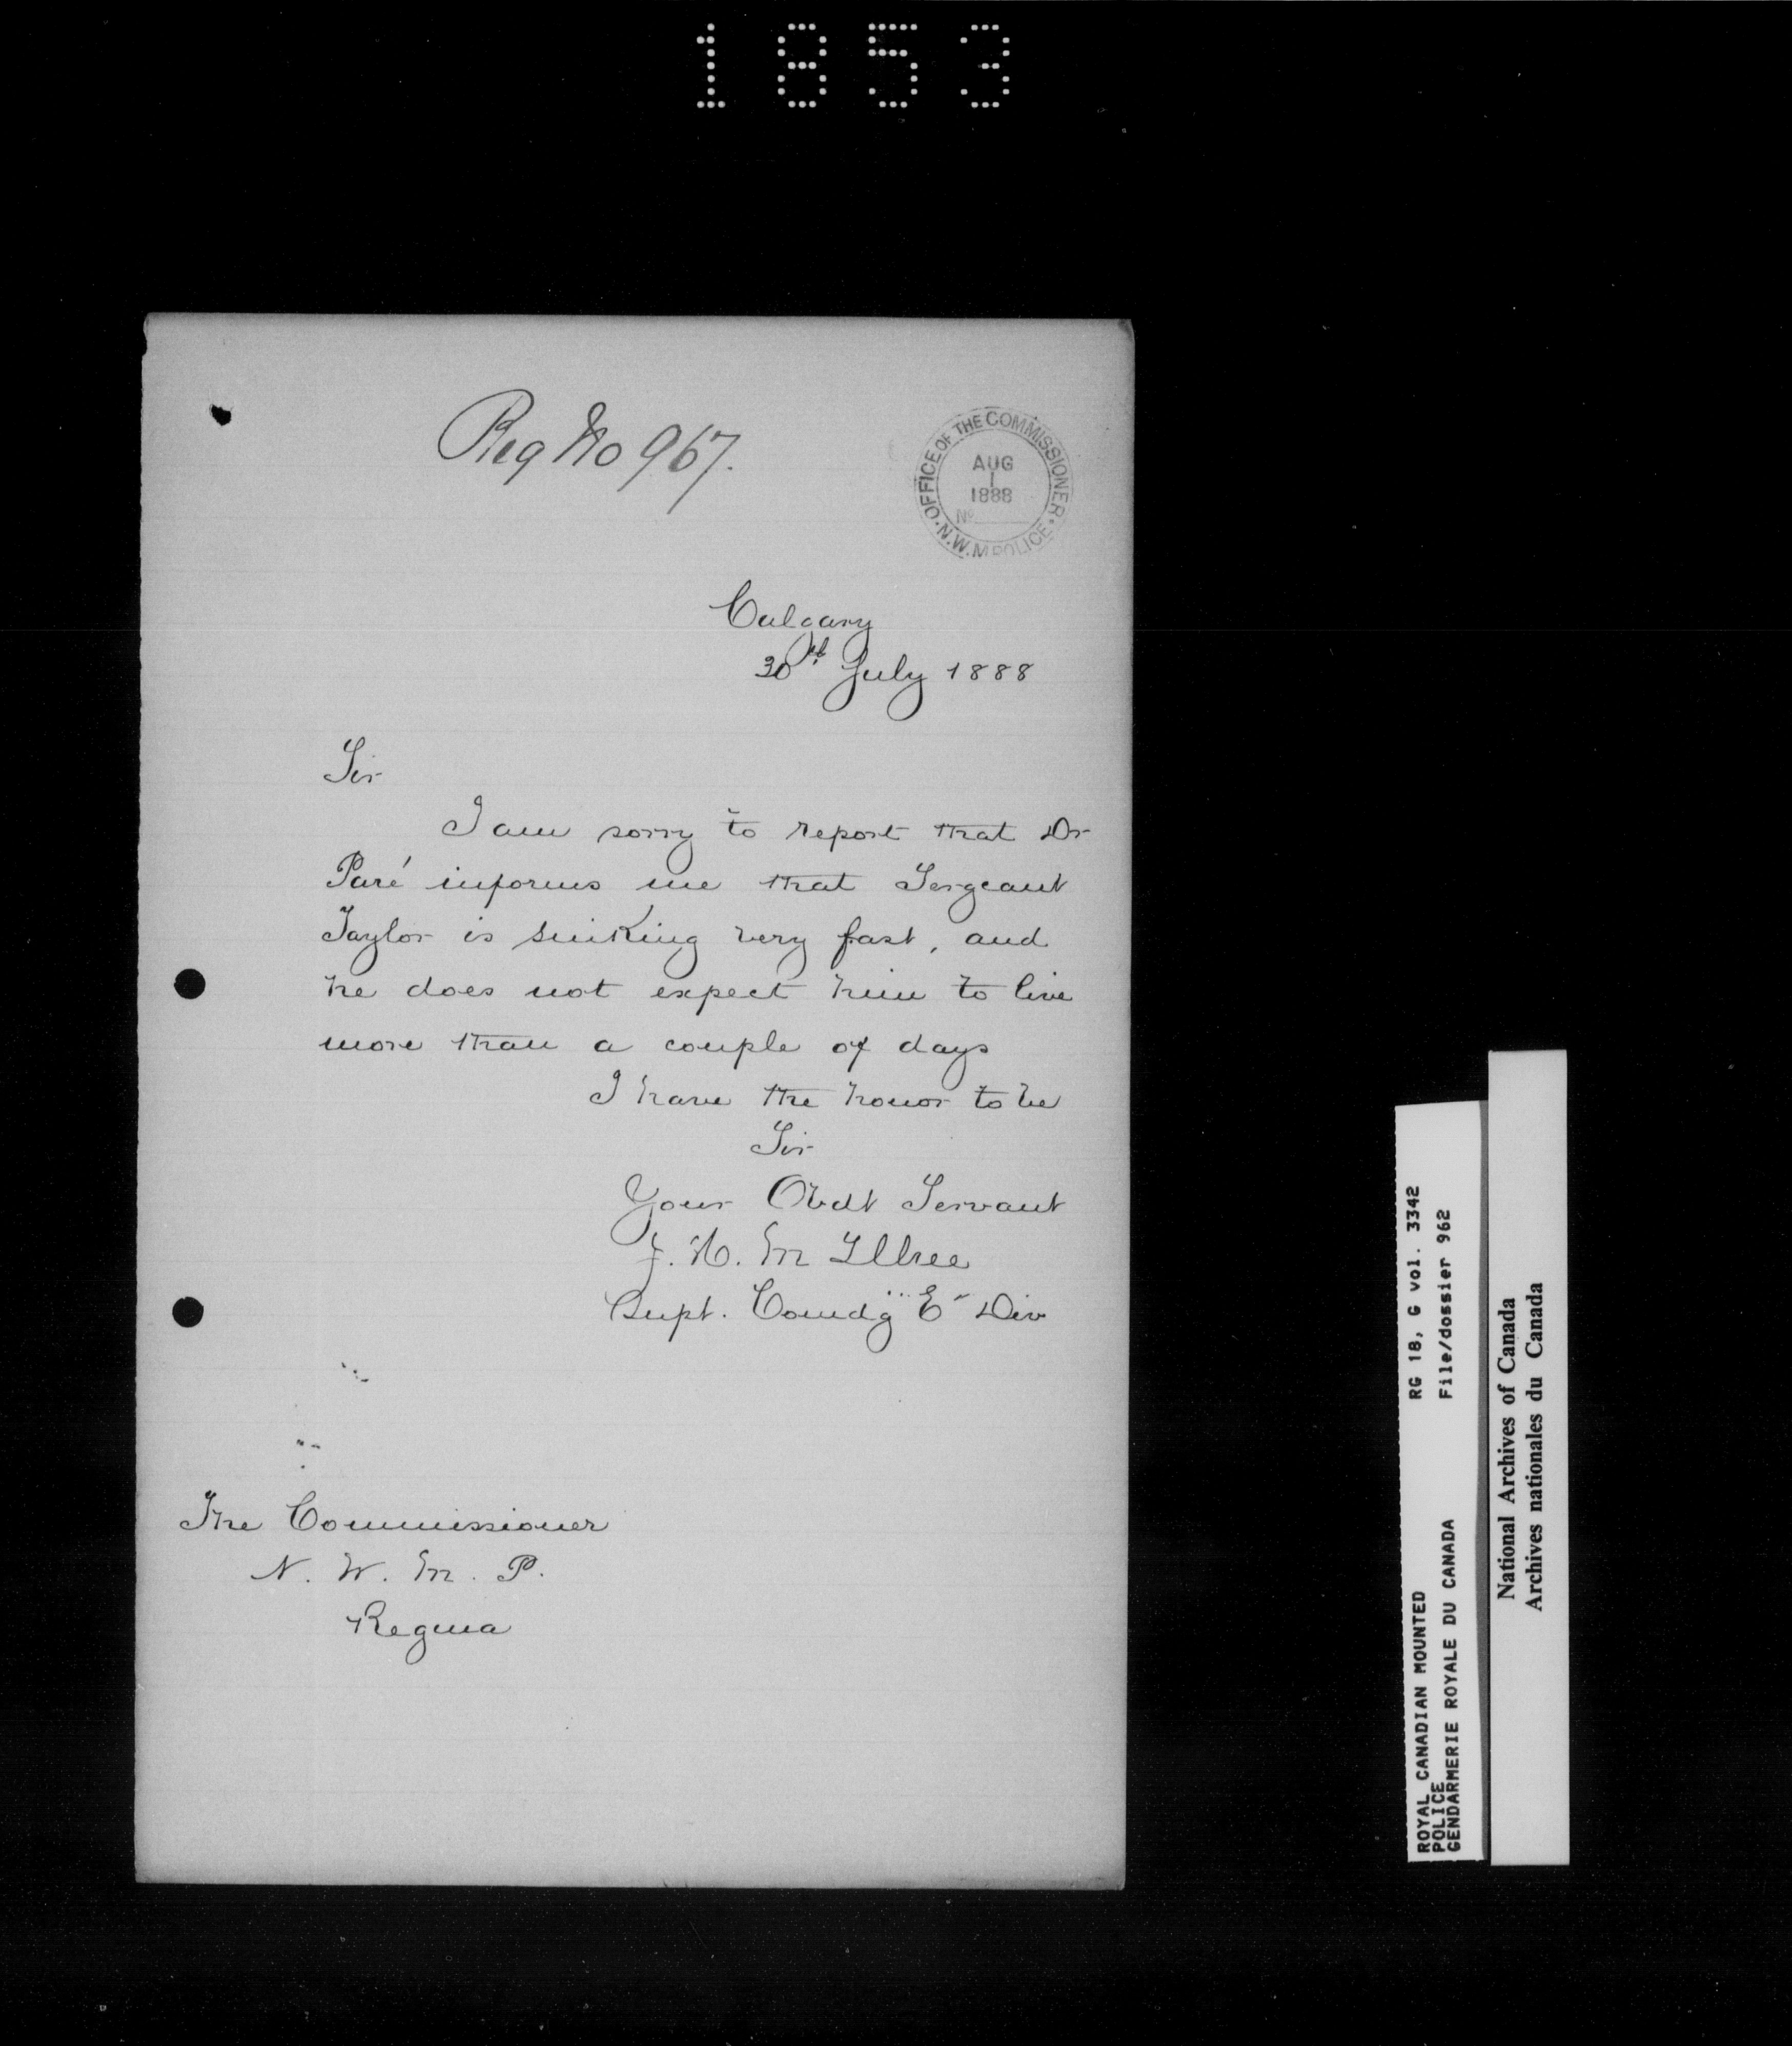 1853
Reg No 967.
OFFICE OF THE COMMISSIONER
AUG
1
1888
No
N.W.M POLICE
Calgary
30th July 1888
Sir
I am sorry to report that Dr
Paré informs me that Sergeant
Taylor is sinking very fast, and
he does not expect him to live
more than a couple of days
I have the honor to be
Sir
Your Obdt Servant
J. H. McIllree
Supt. Comdg "E" Div
The Commissioner
N. W. M. P.
Regina
ROYAL CANADIAN MOUNTED
POLICE
GENDARMERIE ROYALE DU CANADA
RG 18, G vol. 3342
File/dossier 962
National Archives of Canada
Archives nationales du Canada